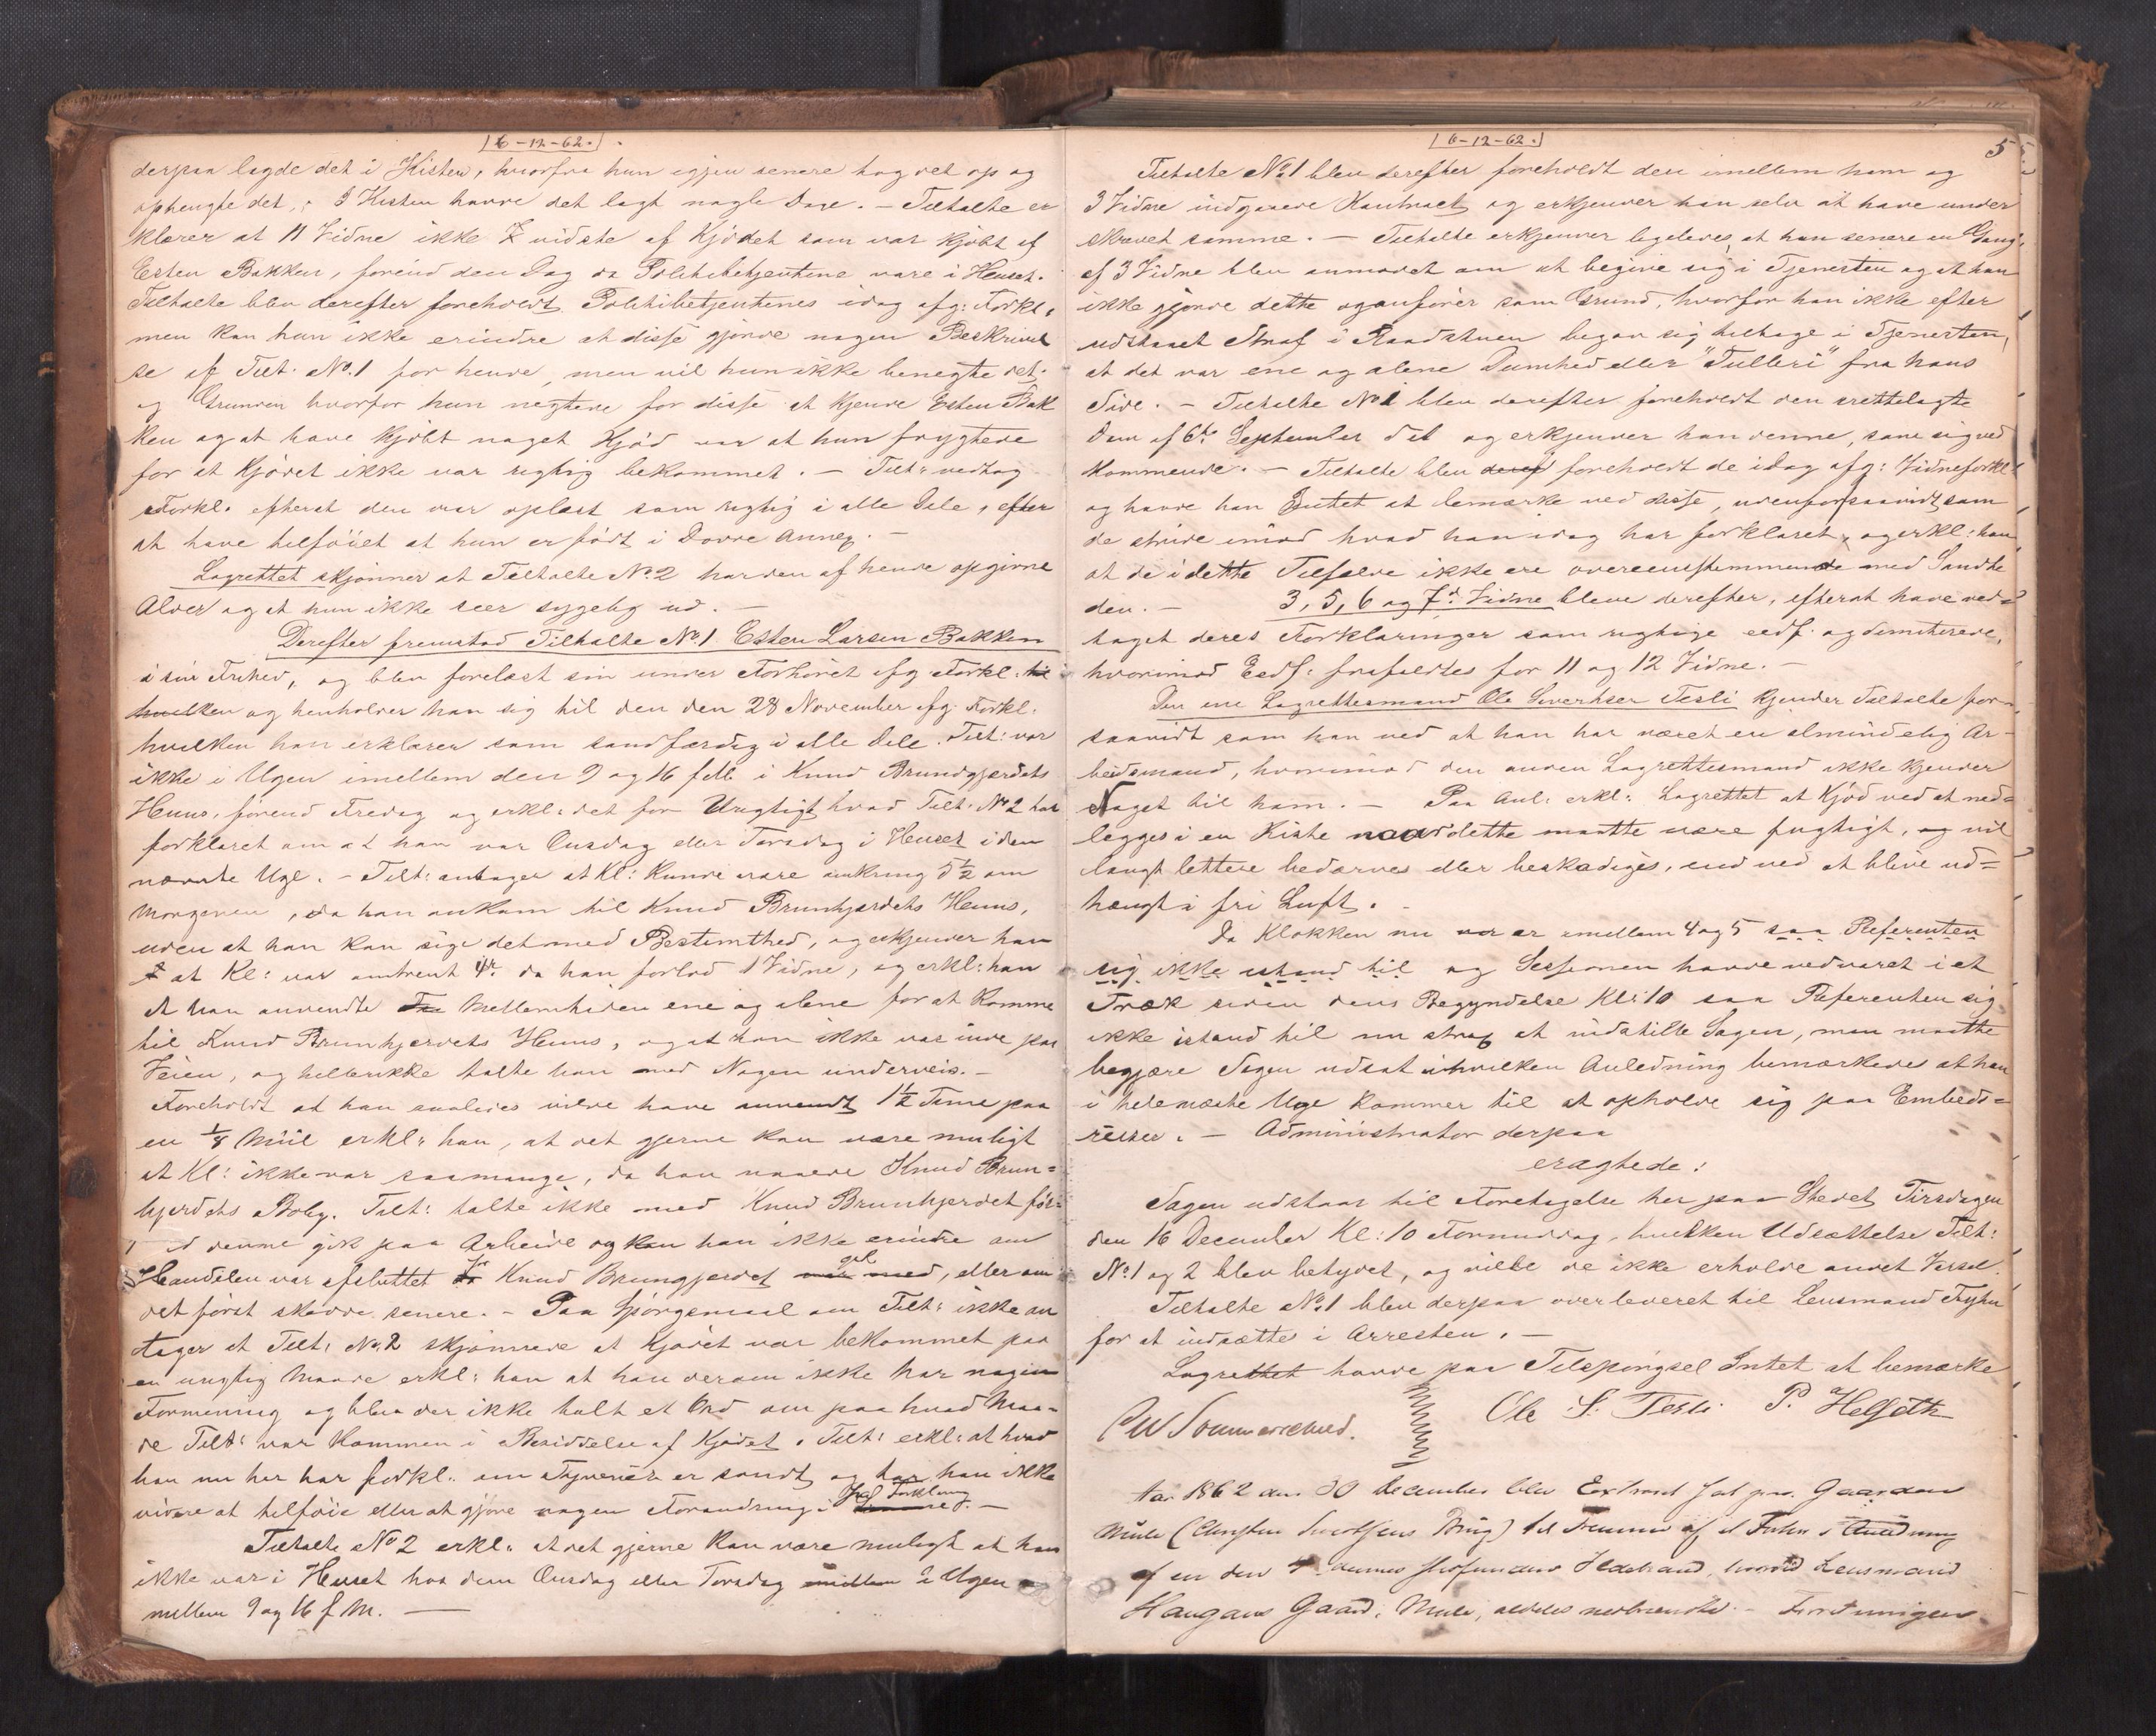 6-12-62.
derpaa lagde det i Kisten, hvorfra hun igjen senere tog det op og
ophengte det, i Kisten havde det lagt nogle Dage. - Tiltalte er
klærer at 11 Vidne ikke vidste af Kjødet som var kjøbt af
Esten Bakken, førend den Dag da Politibetjentene vare i Huset.
Tiltalte blev derefter foreholdt Politibetjentenes idag afg: Forkl.
men kan hun ikke erindre at disse gjorde nogen Beskrivel
se af Tilt. No. 1 for hende, men vil hun ikke benegte det.
og Grunden hvorfor hun negtede for disse at kjende Esten Bak
ken og at have kjøbt noget Kjød var at hun frygtede
for at Kjødet ikke var rigtig bekommet. - Tilt: vedtog
Forkl. efterat den var oplæst som rigtig i alle Dele, efter
at have tilføiet at hun er født i Dovre Annex. -
Lagrettet skjønner at Tiltalte No. 2 har den af hende opgivne
Alder og at hun ikke seer sygelig ud. -
Derefter fremstod Tiltalte No. 1 Esten Larsen Bakken
i sin Frihed, og blev forelæst sin under Forhøret afg Forkl: til
hvilken og henholder han sig til den den 28 November afg. Forkl.
hvilken han erklærer som sandfærdig i alle Dele. Tilt: var
ikke i Ugen imellem den 9 og 16 f. M. i Knud Brundgjerdets
Huus, førend Fredag og erkl: det for Urigtigt hvad Tilt. No 2 har
forklaret om at han var Onsdag eller Torsdag i Huset i den
nævnte Uge. - Tilt: antager at Kl: kunde være omkring 5½ om
Morgenen, da han ankom til Knud Brunhjerdets Huus,
uden at han kan sige det med Bestemthed, og erkjender han
at Kl: var omtrent 4r. da han forlod 1 Vidne, og erkl: han
at han anvendte Mellemtiden ene og alene for at komme
til Knud Brunhjerdets Huus, og at han ikke var inde paa
Veien, og hellerikke talte han med Nogen underveis. -
Foreholdt at han saaledes vilde have anvendt 1½ Time paa
en ⅛ Miil erkl: han, at det gjerne kan være muligt
at Kl: ikke var saamange, da han naaede Knud Brun=
hjerdets Bolig. Tilt: talte ikke med Knud Brunhjerdet før=
end denne gik paa Arbeide og kan han ikke erindre om
Handelen var afsluttet før Knud Brungjerdet gik, eller om
det først skede senere. - Paa Spørgsmaal om Tilt: ikke an
tager at Tilt: No. 2 skjønnede at Kjødet var bekommet paa
en urigtig Maade erkl: han at han derom ikke har nogen
Formening og blev der ikke talt et Ord om paa hvad Maa-
de Tilt: var kommen i Besiddelse af Kjødet. Tilt: erkl: at hvad
han nu her har forkl: om Tyveriet er sandt og har han ikke
videre at tilføie eller at gjøre nogen Forandring i Forklaring. -
Tiltalte No 2 erkl: at det gjerne kan være muligt at han
ikke var i Huset hos dem Onsdag eller Torsdag i Ugen
mellem 9 og 16 f. M. -
6-12-62.
5
Tiltalte No. 1 blev derefter foreholdt den imellem ham og
3 Vidne indgaaede Kontract og erkjender han selv at have under
skrevet samme. - Tiltalte erkjender ligeledes, at han senere en Gang
af 3 Vidne blev anmodet om at begive sig i Tjenesten og at han
ikke gjorde dette og anfører som Grund, hvorfor han ikke efter
udstaaet Straf i Raadstuen begav sig tilbage i Tjenesten,
at det var ene og alene Dumhed eller "Tulleri" fra hans
Side. - Tiltalte No 1 blev derefter foreholdt den irettelagte
Dom af 6te September d. A og erkjender han denne, som sig ved
kommende. - Tiltalte blev foreholdt de idag afg: Vidneforkl:
og havde han Intet at bemærke ved disse, udenforsaavidt som
de stride imod hvad han idag har forklaret, og erkl: han
at de i dette Tilfælde ikke ere overeensstemmende med Sandhe
den. - 3, 5, 6 og 7d. Vidne bleve derefter, efterat have ved=
taget deres Forklaringer som rigtige eedf. og dimitterede,
hvorimod Eedf: frafaldtes for 11 og 12 Vidne. -
Den ene Lagrettesmand Ole Siverthsen Tesli kjender Tiltalte for-
saavidt som han ved at han har været en almindelig Ar-
beidsmand, hvorimod den anden Lagrettesmand ikke kjender
Noget til ham. - Paa Anl: erkl: Lagrettet at Kjød ved at ned=
legges i en Kiste naar dette maatte være fugtigt, og vil
langt lettere bedærves eller beskadiges, end ved at blive ud=
hængt i fri Luft. -
Da Klokken nu var er imellem 4 og 5 saa Referenten
sig ikke istand til og Sessionen havde vedvaret i et
Træk siden dens Begyndelse Kl: 10 saa Referenten sig
ikke istand til nu strax at indstille Sagen, men maatte
begjære Sagen udsat ihvilken Anledning bemærkedes at han
i hele næste Uge kommer til at opholde sig paa Embeds=
reiser. - Administrator derpaa
eragtede:
Sagen udstaar til Foretagelse her paa Stedet Tirsdagen
den 16 December Kl: 10 Formiddag, hvilken Udsættelse Tilt:
No. 1 og 2 blev betydet, og ville de ikke erholde andet Varsel.
Tiltalte No. 1 blev derpaa overleveret til Lensmand Fyhn
for at indsættes i Arresten. -
Lagrettet havde paa Tilspørgsel Intet at bemærke
Ole S. Tesli P. Helseth
Aar 1862 den 30 December blev Extraret sat paa Gaarden
Mule til Fremme af et Forhør i Anledning
af en den 4 dennes Ildebrand, hvorved Lensmand
Haugans Gaard, Mule, aldeles nedbrændte. - Forretningen